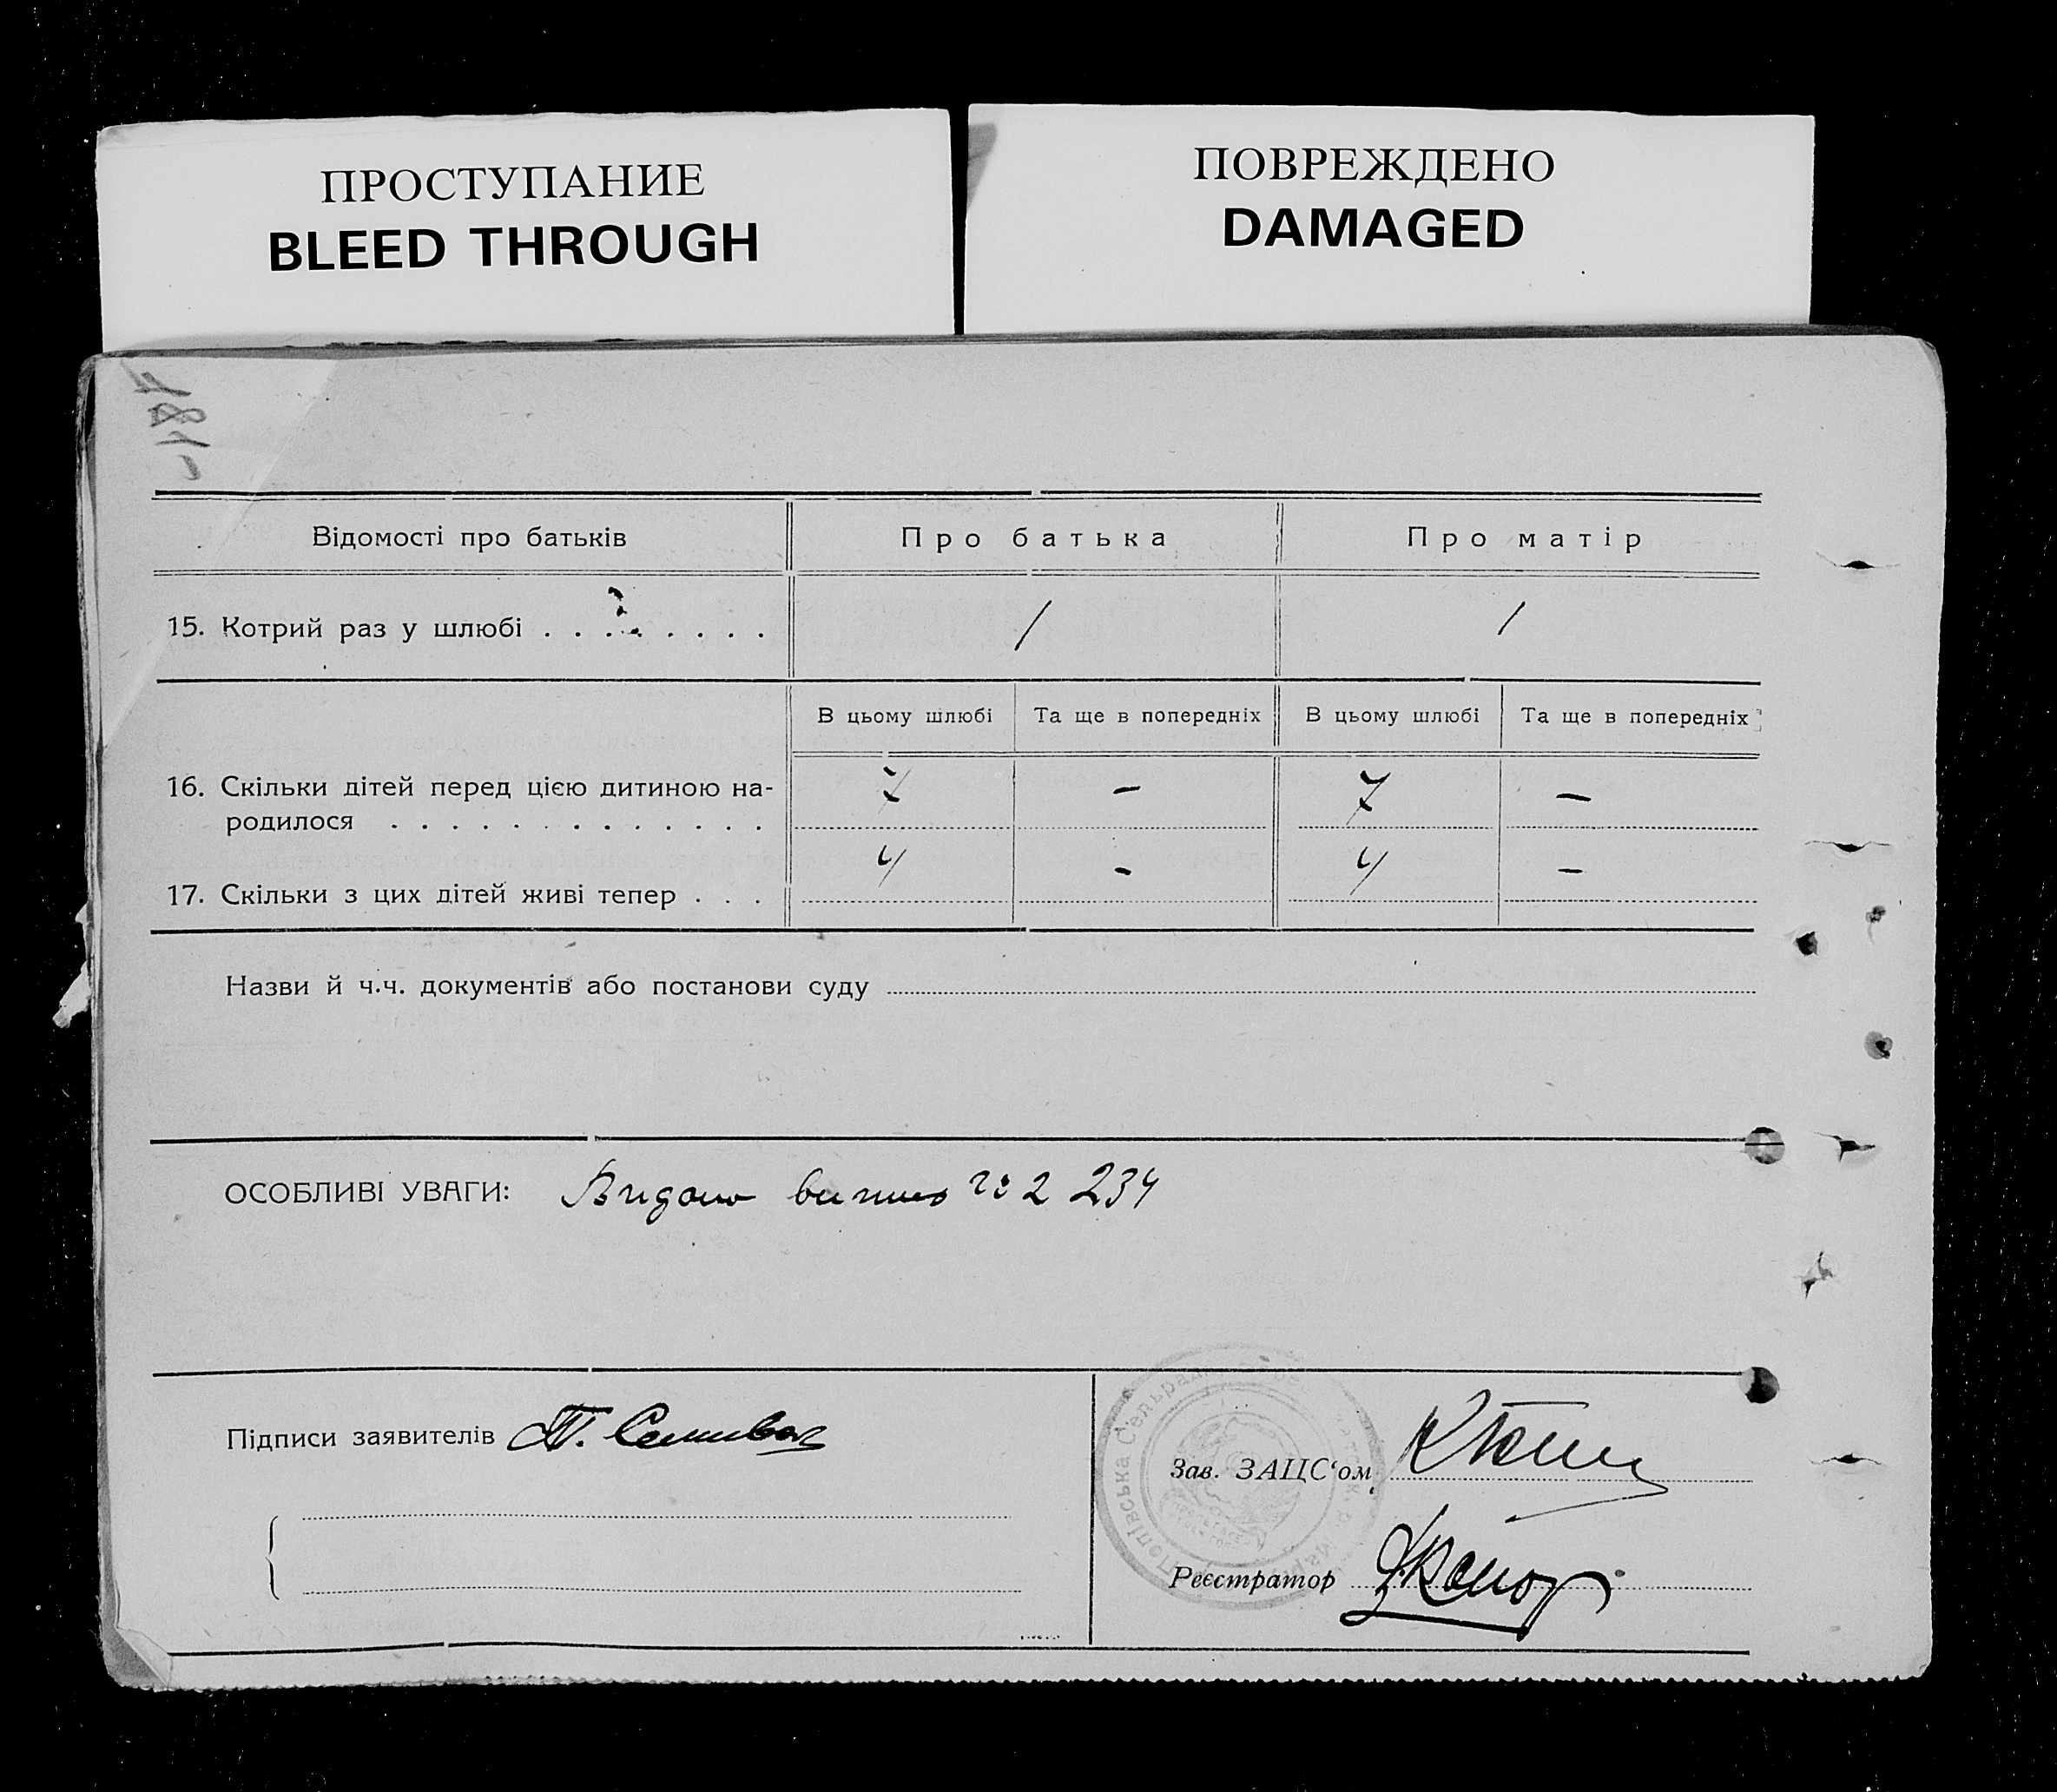 ПРОСТУПАНИЕ
BLEED THROUGH
ПОВРЕЖДЕНО
DAMAGED
Відомості про батьків
Про батька
Про матір
15. Котрий раз у шлюбі . . . . . . . .
/
/
В цьому шлюбі
Та ще в попередніх
В цьому шлюбі
Та ще в попередніх
16. Скільки дітей перед цією дитиною на-
родилося . . . . . . . . . . . . .
7
–
7
–
17. Скільки з цих дітей живі тепер . . .
4
–
4
–
Назви й ч.ч. документів або постанови суду
ОСОБЛИВІ УВАГИ: Видано 234
Підписи заявителів
Зав. ЗАЦС‘ом
Реєстратор